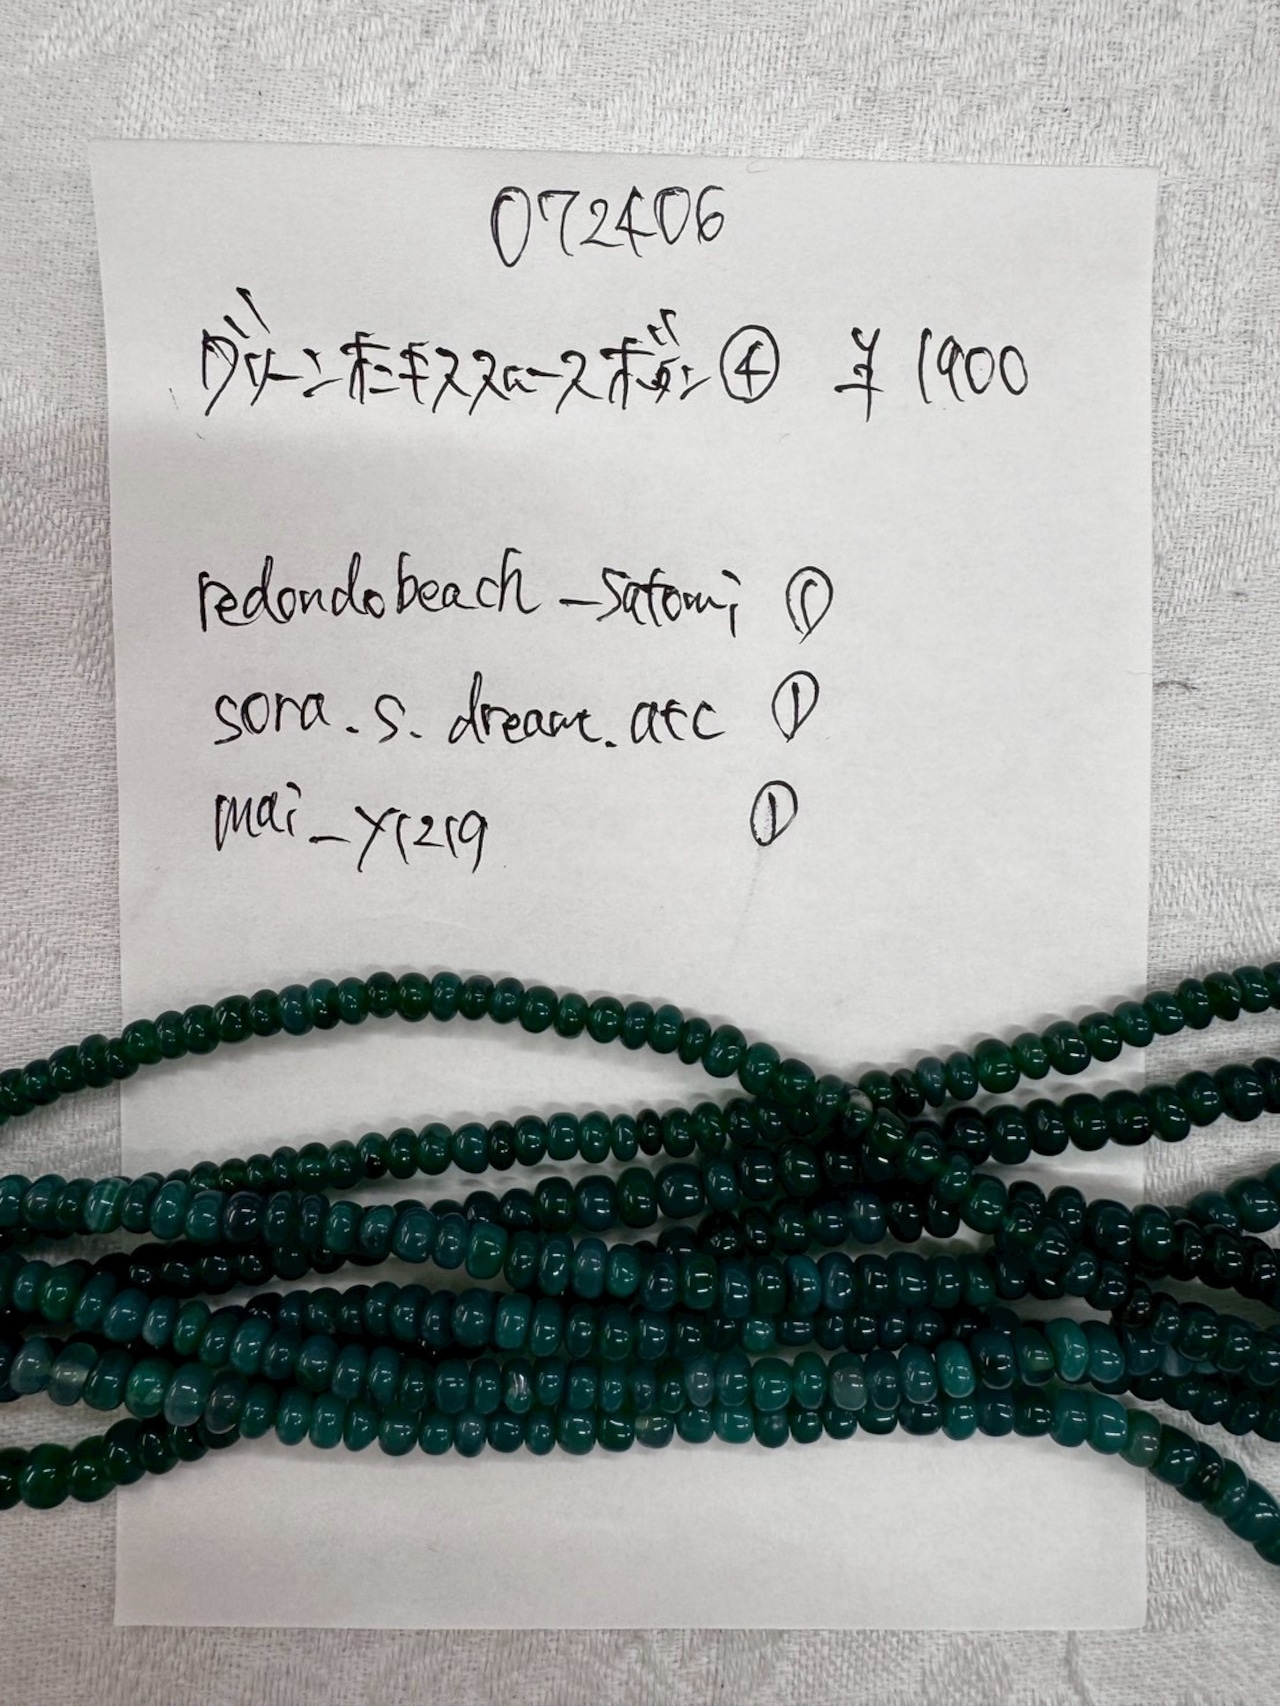 072406
グリーンオニキススムースボタン④ ¥1900
redondobeach_satomi ①
sora.s.dream.arc ①
mai_y1219 ①